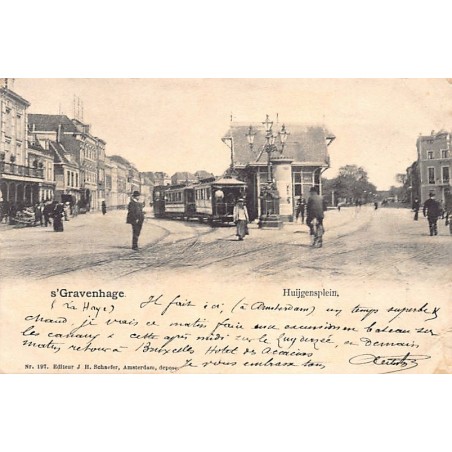 s'Gravenhage.
Huijgensplein.
(La Haye) Il fait ici, (à Amsterdam) un temps superbe &
chaud, je vrais ce matin faire une excursion en bateau sur
les canaux & cette après midi sur le Zuyderzée, en Demain
matin retour à Bruxelles Hotel des Acacias
Je vous embrasse tous
Nr. 197. Editeur J. H. Schaefer, Amsterdam, depose